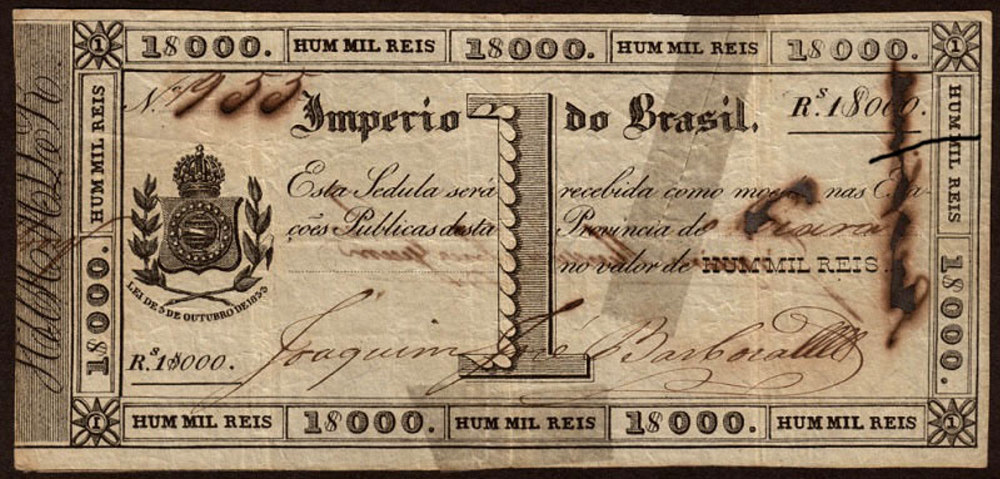 1$000. HUM MIL REIS 1$000. HUM MIL REIS 1$000.
Nº 1955
Imperio 1 do Brasil.
R.s 1$000.
Esta Sedula será recebida como moeda nas Esta-
ções Publicas desta Provincia do Ceará
no valor de HUM MIL REIS.
LEI DE 3 DE OUTUBRO DE 1833
R.s 1$000.
Joaquim José Barboza
HUM MIL REIS 1$000. HUM MIL REIS 1$000. HUM MIL REIS
HUM MIL REIS 1$000.
HUM MIL REIS 1$000.
1
1
1
1